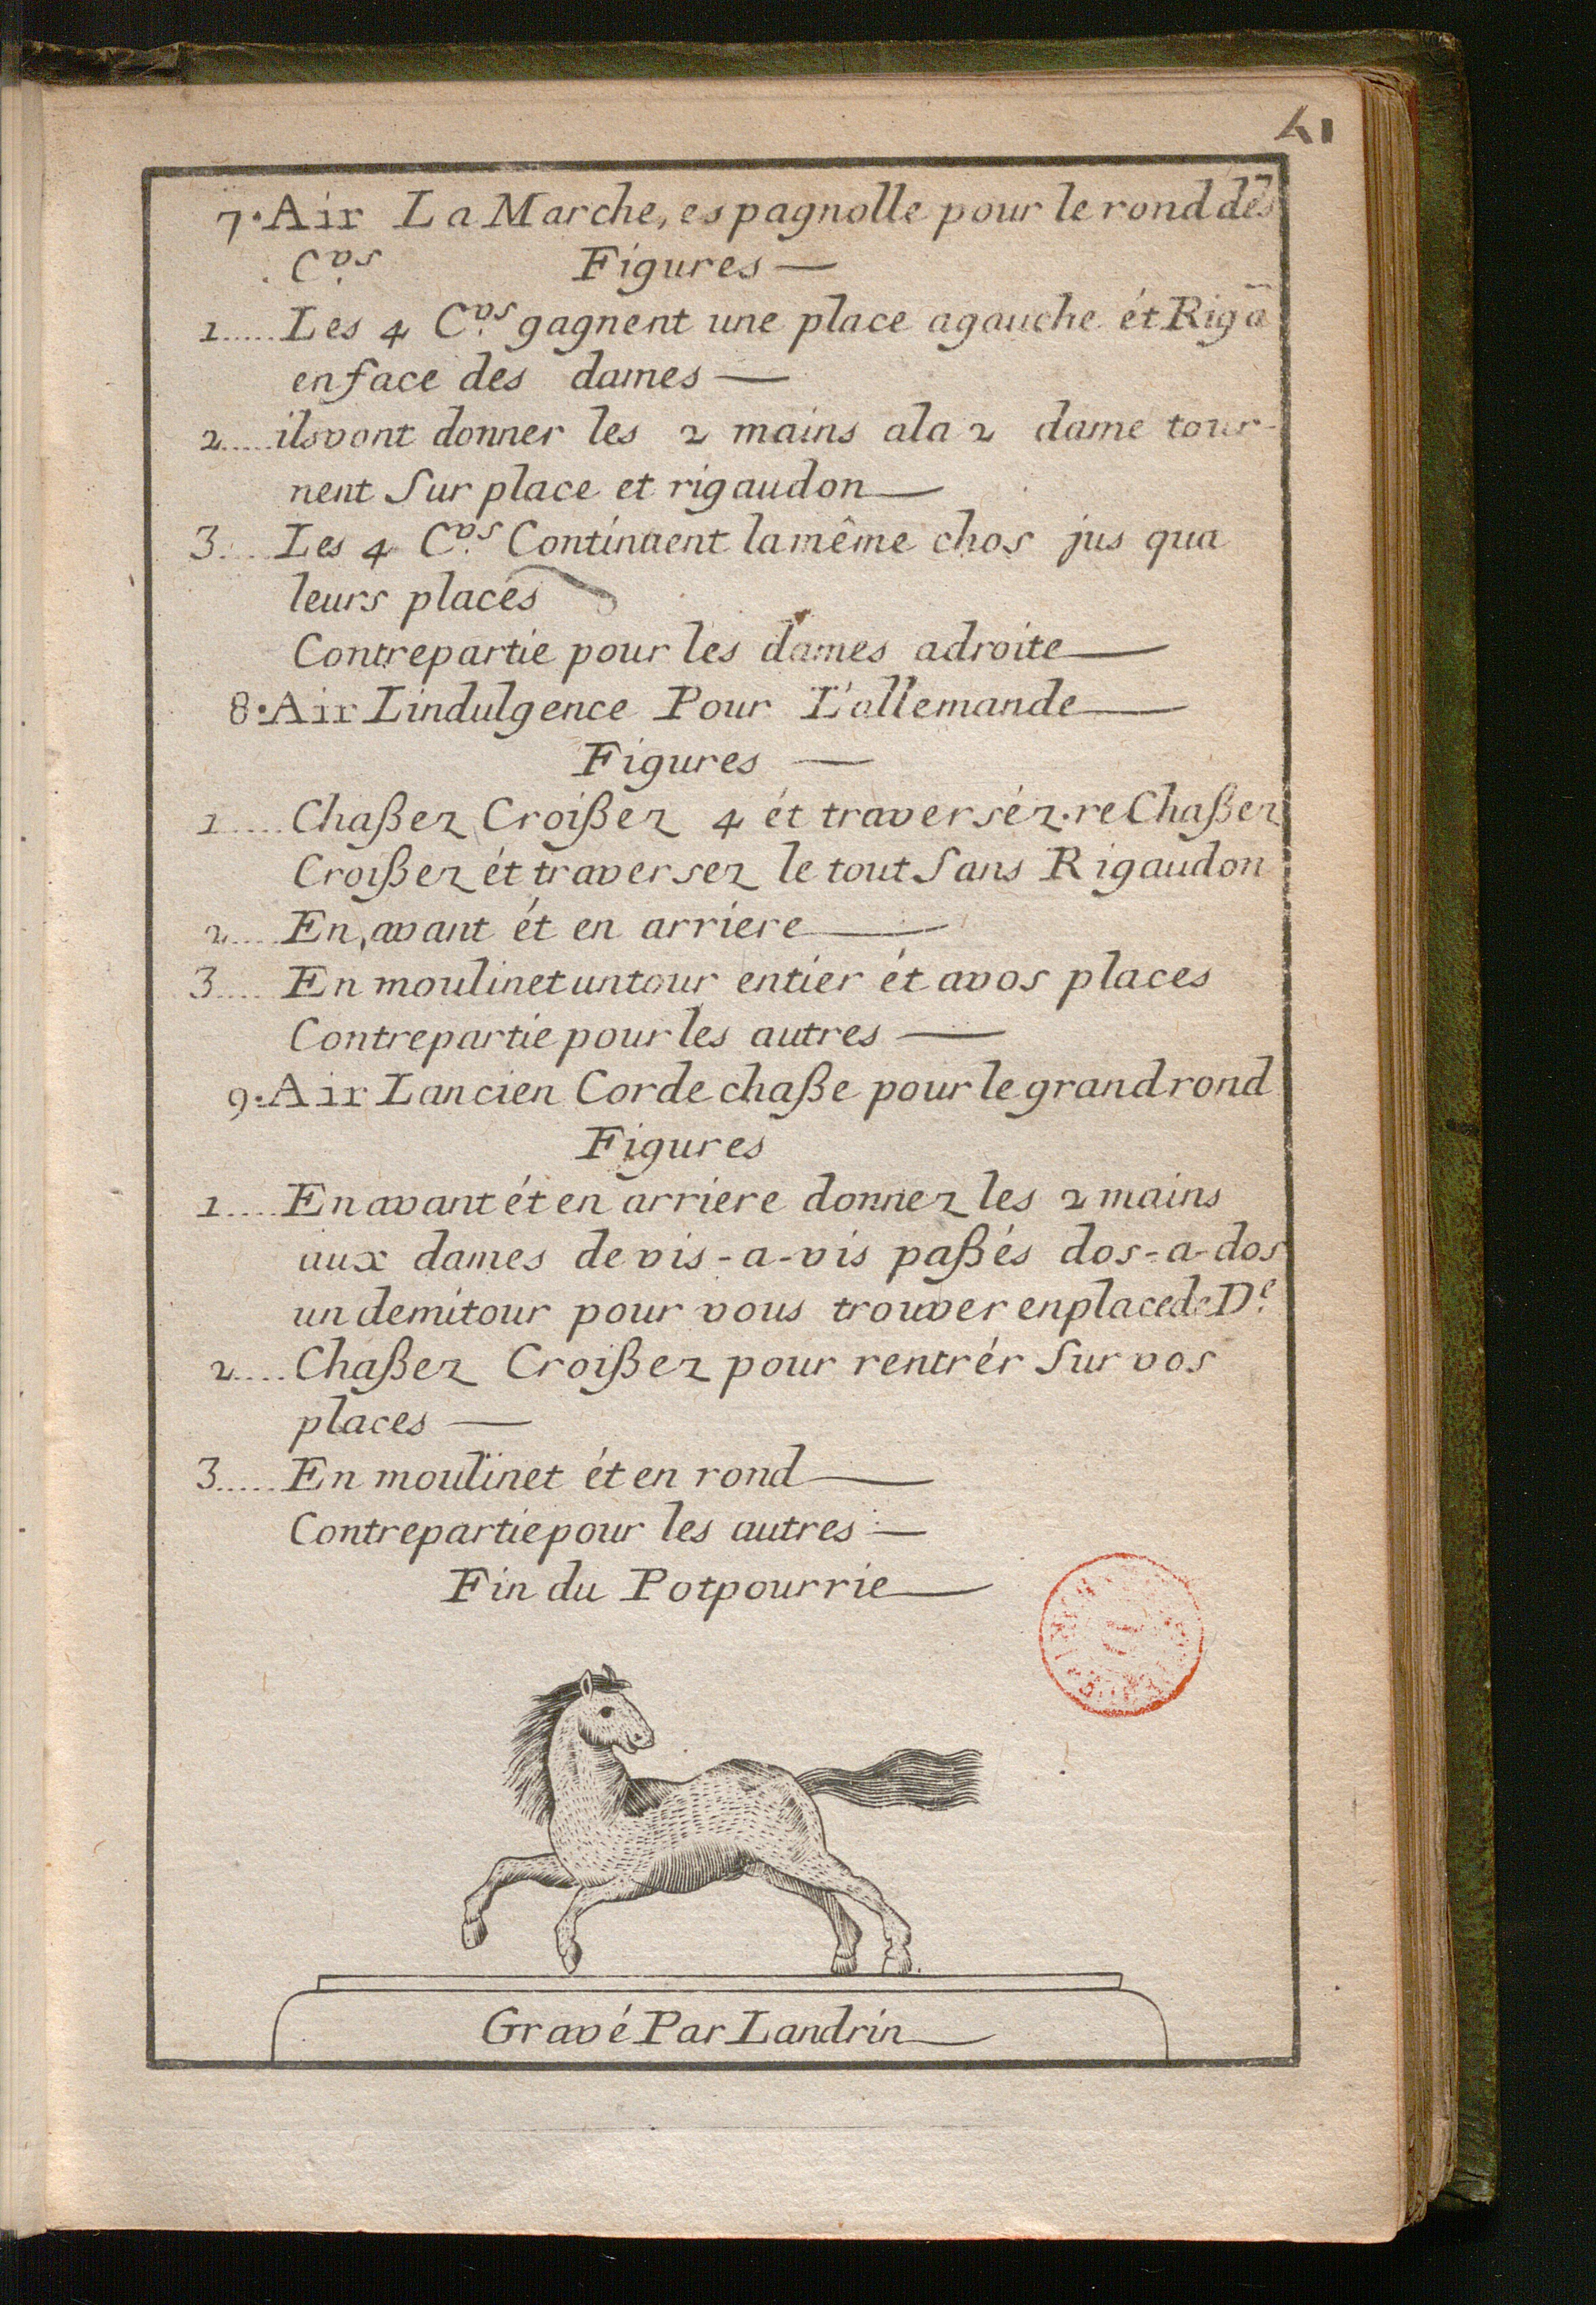 41
7. Air La Marche, espagnolle pour le rond des
C.vs Figures —
1..... Les 4 C.vs gagnent une place agauche ét Rigā
enface des dames —
2..... ilsvont donner les 2 mains ala 2 dame tour-
nent Sur place et rigaudon —
3.... Les 4 C.vs Continuent lamême chos jus qua
leurs places
Contrepartie pour les dames adroite —
8. Air Lindulgence Pour L'allemande —
Figures —
1.... Chaßez Croißez 4 ét traverséz. re Chaßez
Croißez ét traversez le tout Sans Rigaudon
2.... En, avant ét en arriere —
3.... En moulinet untour entier ét avos places
Contrepartie pour les autres —
9. Air Lancien Cordechaße pour le grand rond
Figures
1.... En avant ét en arriere donnez les 2 mains
aux dames de vis-a-vis paßés dos-a-dos
un demitour pour vous trouver enplacede D.e
2.... Chaßez Croißez pour rentrér Sur vos
places —
3..... En moulinet ét en rond —
Contrepartiepour les autres —
Fin du Potpourrie —
Gravé Par Landrin —